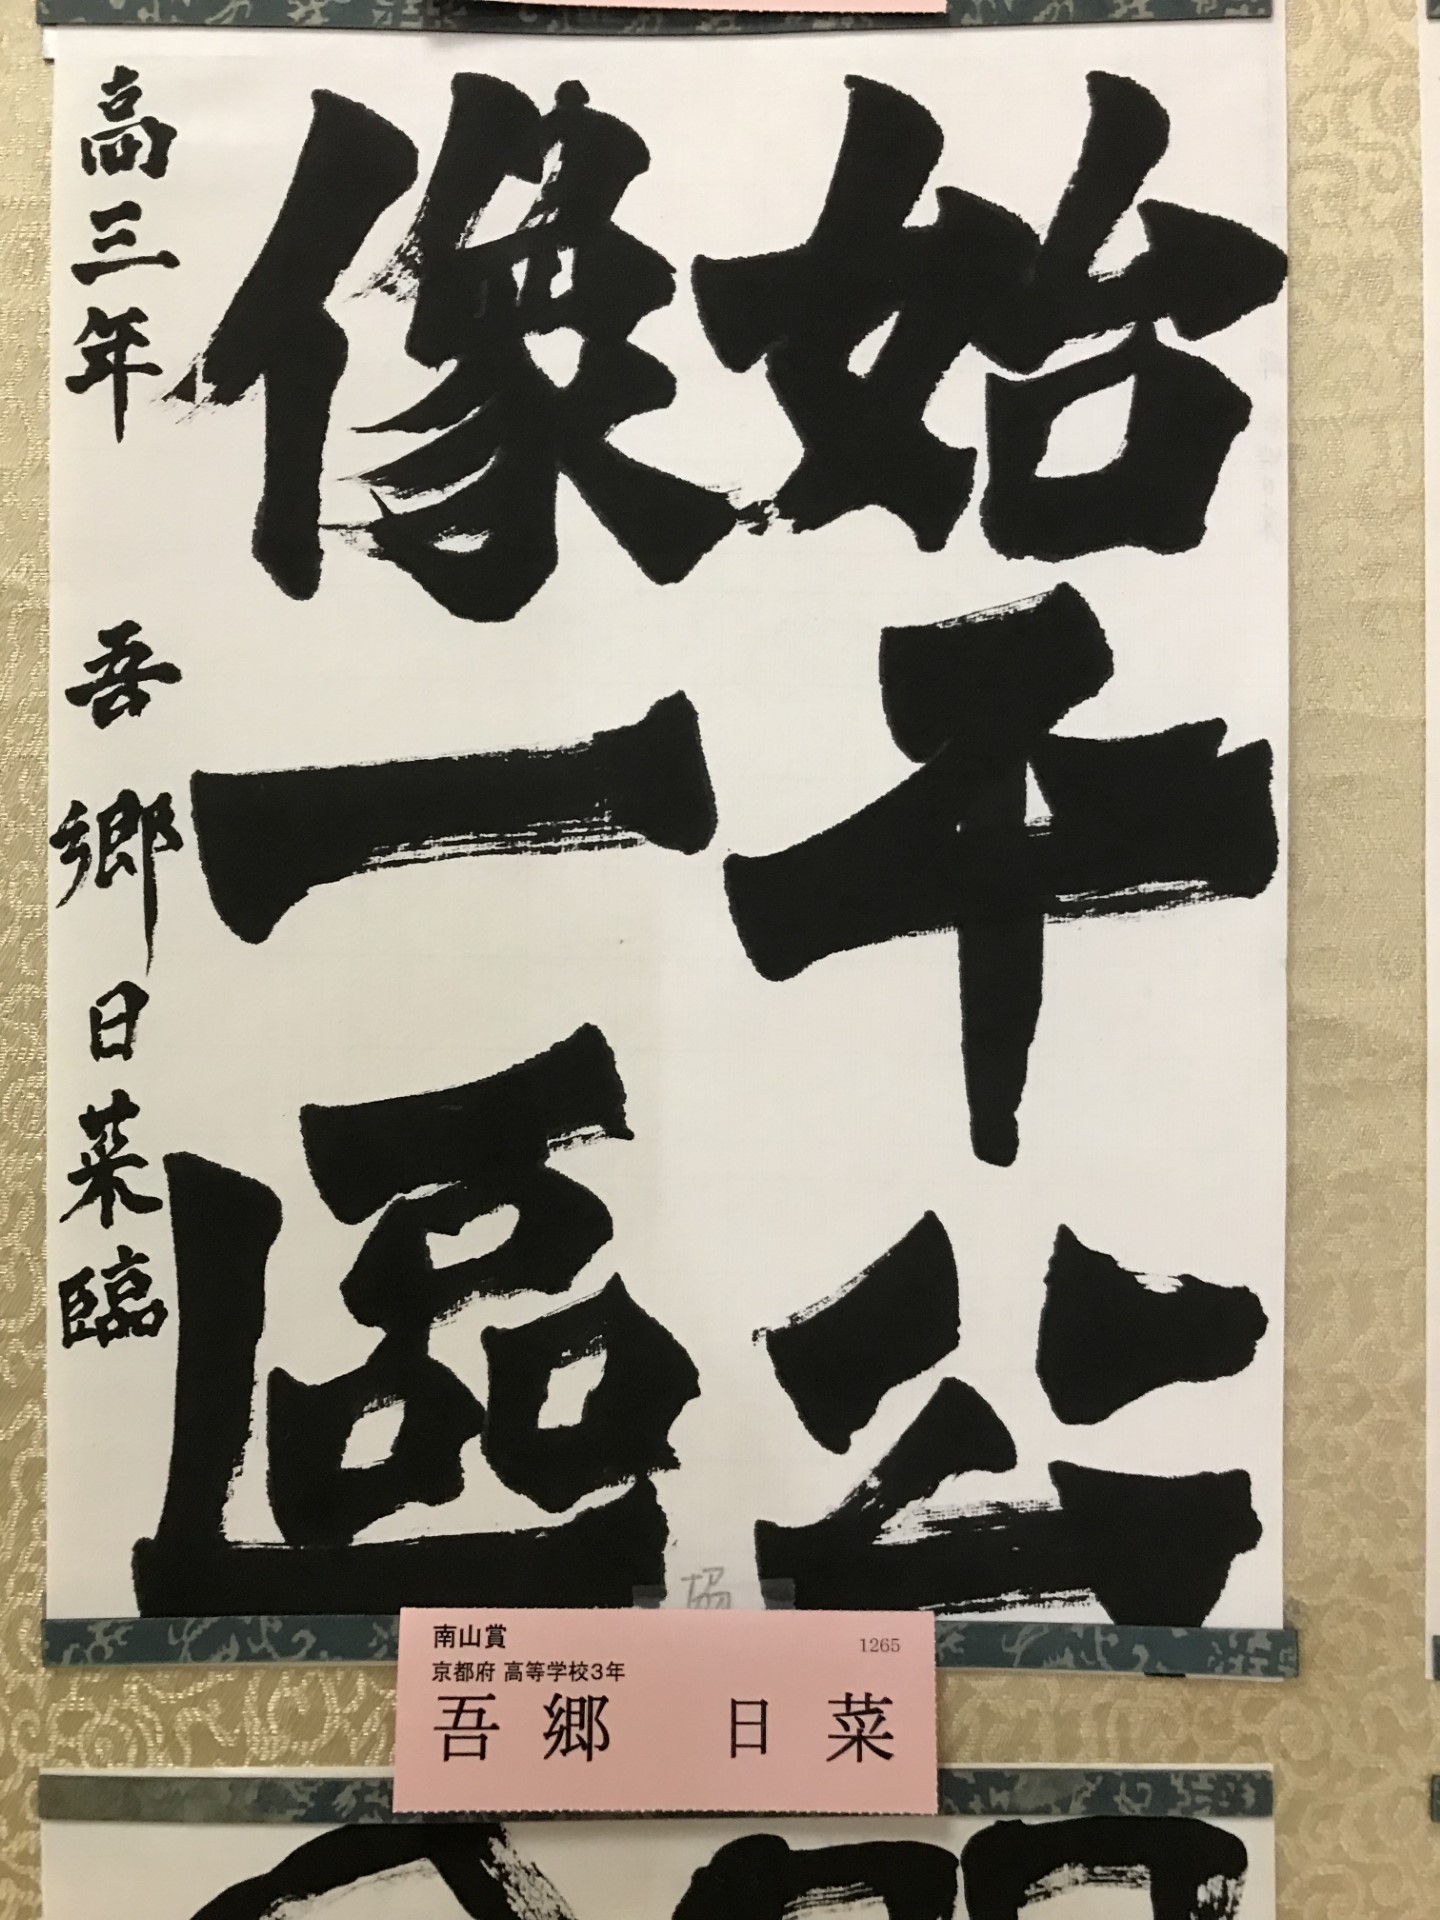 始平公
像一區
高三年 吾郷日菜臨
南山賞
1265
京都府 高等学校3年
吾郷 日菜